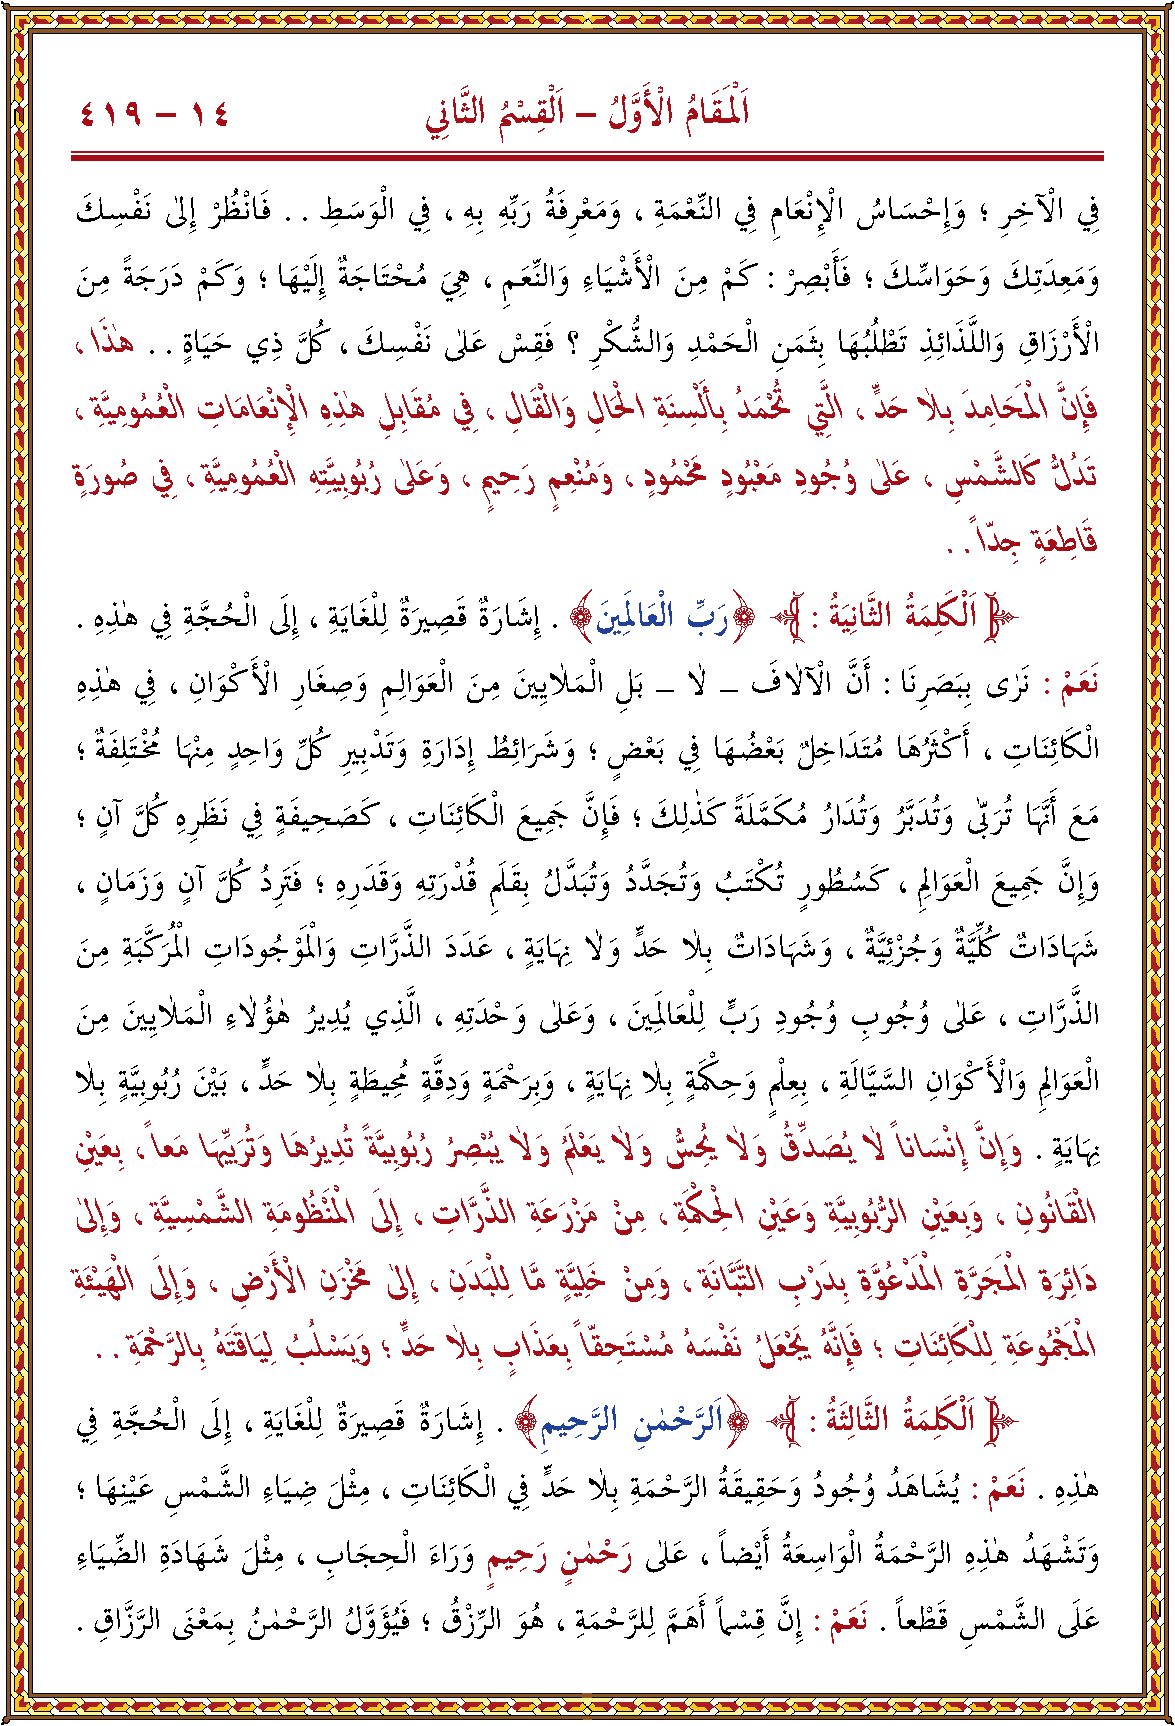 اَلْمَقَامُ الْأَوَّلُ – اَلْقِسْمُ الثَّانِي ١٤ – ٤١٩
فِي الْآخِرِ ؛ وَإِحْسَاسُ الْإِنْعَامِ فِي النِّعْمَةِ ، وَمَعْرِفَةُ رَبِّهِ بِهِ ، فِي الْوَسَطِ . . فَانْظُرْ إِلٰى نَفْسِكَ
وَمَعِدَتِكَ وَحَوَاسِّكَ ؛ فَأَبْصِرْ : كَمْ مِنَ الْأَشْيَاءِ وَالنِّعَمِ ، هِيَ مُحْتَاجَةٌ إِلَيْهَا ؛ وَكَمْ دَرَجَةً مِنَ
الْأَرْزَاقِ وَاللَّذَائِذِ تَطْلُبُهَا بِثَمَنِ الْحَمْدِ وَالشُّكْرِ ؟ فَقِسْ عَلٰى نَفْسِكَ ، كُلَّ ذِي حَيَاةٍ . . هٰذَا ،
فَإِنَّ الْمَحَامِدَ بِلاٰ حَدٍّ ، الَّتِي تُحْمَدُ بِأَلْسِنَةِ الْحَالِ وَالْقَالِ ، فِي مُقَابِلِ هٰذِهِ الْإِنْعَامَاتِ الْعُمُومِيَّةِ ،
تَدُلُّ كَالشَّمْسِ ، عَلٰى وُجُودِ مَعْبُودٍ مَحْمُودٍ ، وَمُنْعِمٍ رَحِيمٍ ، وَعَلٰى رُبُوبِيَّتِهِ الْعُمُومِيَّةِ ، فِي صُورَةٍ
قَاطِعَةٍ جِدّاً . .
﴿ اَلْكَلِمَةُ الثَّانِيَةُ : ﴾ ﴿رَبِّ الْعَالَمِينَ﴾ . إِشَارَةٌ قَصِيرَةٌ لِلْغَايَةِ ، إِلَى الْحُجَّةِ فِي هٰذِهِ .
نَعَمْ : نَرٰى بِبَصَرِنَا : أَنَّ الْآلاٰفَ – لاٰ – بَلِ الْمَلاٰيِينَ مِنَ الْعَوَالِمِ وَصِغَارِ الْأَكْوَانِ ، فِي هٰذِهِ
الْكَائِنَاتِ ، أَكْثَرُهَا مُتَدَاخِلٌ بَعْضُهَا فِي بَعْضٍ ؛ وَشَرَائِطُ إِدَارَةِ وَتَدْبِيرِ كُلِّ وَاحِدٍ مِنْهَا مُخْتَلِفَةٌ ؛
مَعَ أَنَّهَا تُرَبّٰى وَتُدَبَّرُ وَتُدَارُ مُكَمَّلَةً كَذٰلِكَ ؛ فَإِنَّ جَمِيعَ الْكَائِنَاتِ ، كَصَحِيفَةٍ فِي نَظَرِهِ كُلَّ آنٍ ؛
وَإِنَّ جَمِيعَ الْعَوَالِمِ ، كَسُطُورٍ تُكْتَبُ وَتُجَدَّدُ وَتُبَدَّلُ بِقَلَمِ قُدْرَتِهِ وَقَدَرِهِ ؛ فَتَرِدُ كُلَّ آنٍ وَزَمَانٍ ،
شَهَادَاتٌ كُلِّيَّةٌ وَجُزْئِيَّةٌ ، وَشَهَادَاتٌ بِلاٰ حَدٍّ وَلاٰ نِهَايَةٍ ، عَدَدَ الذَّرَّاتِ وَالْمَوْجُودَاتِ الْمُرَكَّبَةِ مِنَ
الذَّرَّاتِ ، عَلٰى وُجُوبِ وُجُودِ رَبٍّ لِلْعَالَمِينَ ، وَعَلٰى وَحْدَتِهِ ، الَّذِي يُدِيرُ هٰؤُلاٰءِ الْمَلاٰيِينَ مِنَ
الْعَوَالِمِ وَالْأَكْوَانِ السَّيَّالَةِ ، بِعِلْمٍ وَحِكْمَةٍ بِلاٰ نِهَايَةٍ ، وَبِرَحْمَةٍ وَدِقَّةٍ مُحِيطَةٍ بِلاٰ حَدٍّ ، بَيْنَ رُبُوبِيَّةٍ بِلاٰ
نِهَايَةٍ . وَإِنَّ إِنْسَاناً لاٰ يُصَدِّقُ وَلاٰ يُحِسُّ وَلاٰ يَعْلَمُ وَلاٰ يُبْصِرُ رُبُوبِيَّةً تُدِيرُهَا وَتُرَبِّيهَا مَعاً ، بِعَيْنِ
الْقَانُونِ ، وَبِعَيْنِ الرُّبُوبِيَّةِ وَعَيْنِ الْحِكْمَةِ ، مِنْ مَزْرَعَةِ الذَّرَّاتِ ، إِلَى الْمَنْظُومَةِ الشَّمْسِيَّةِ ، وَإِلٰى
دَائِرَةِ الْمَجَرَّةِ الْمَدْعُوَّةِ بِدَرْبِ التَّبَّانَةِ ، وَمِنْ خَلِيَّةٍ مَّا لِلْبَدَنِ ، إِلٰى مَخْزَنِ الْأَرْضِ ، وَإِلَى الْهَيْئَةِ
الْمَجْمُوعَةِ لِلْكَائِنَاتِ ؛ فَإِنَّهُ يَجْعَلُ نَفْسَهُ مُسْتَحِقّاً بِعَذَابٍ بِلاٰ حَدٍّ ؛ وَيَسْلُبُ لِيَاقَتَهُ بِالرَّحْمَةِ . .
﴿ اَلْكَلِمَةُ الثَّالِثَةُ : ﴾ ﴿اَلرَّحْمٰنِ الرَّحِيمِ﴾ . إِشَارَةٌ قَصِيرَةٌ لِلْغَايَةِ ، إِلَى الْحُجَّةِ فِي
هٰذِهِ . نَعَمْ : يُشَاهَدُ وُجُودُ وَحَقِيقَةُ الرَّحْمَةِ بِلاٰ حَدٍّ فِي الْكَائِنَاتِ ، مِثْلَ ضِيَاءِ الشَّمْسِ عَيْنِهَا ؛
وَتَشْهَدُ هٰذِهِ الرَّحْمَةُ الْوَاسِعَةُ أَيْضاً ، عَلٰى رَحْمٰنٍ رَحِيمٍ وَرَاءَ الْحِجَابِ ، مِثْلَ شَهَادَةِ الضِّيَاءِ
عَلَى الشَّمْسِ قَطْعاً . نَعَمْ : إِنَّ قِسْماً أَهَمَّ لِلرَّحْمَةِ ، هُوَ الرِّزْقُ ؛ فَيُؤَوَّلُ الرَّحْمٰنُ بِمَعْنَى الرَّزَّاقِ .